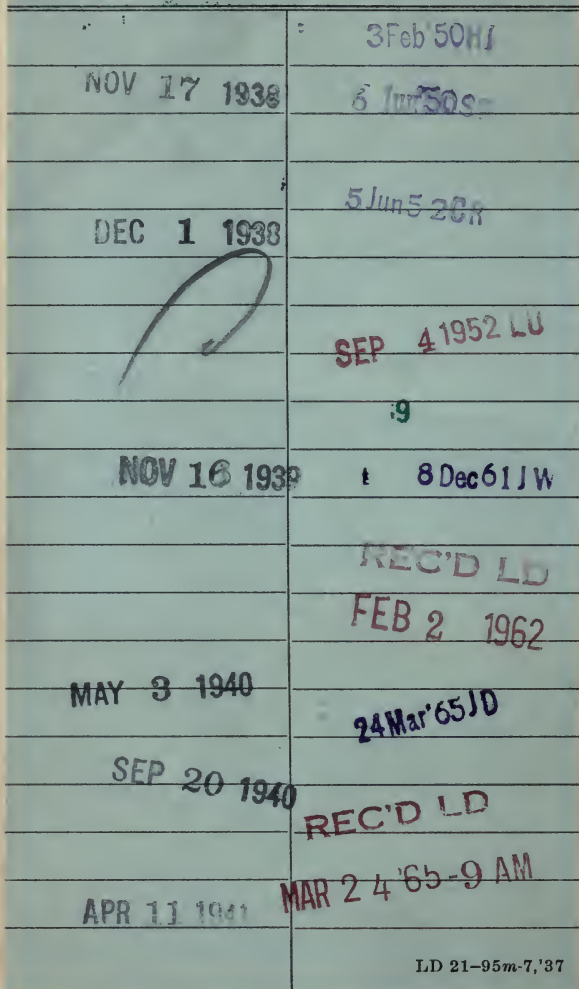 NOV 17 1938
DEC 1 1938
NOV 16 1939
MAY 3 1940
SEP 20 1940
APR 11 1941
3Feb'50HJ
6 Jun'50
5Jun52CR
SEP 4 1952 LU
9
8Dec61JW
REC'D LD
FEB 2 1962
24Mar'65JD
REC'D LD
MAR 24 '65-9 AM
LD 21–95m-7,'37